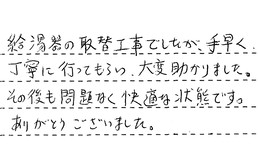 給湯器の取替工事でしたが、手早く、
丁寧に行ってもらい、大変助かりました。
その後も問題なく快適な状態です。
ありがとうございました。